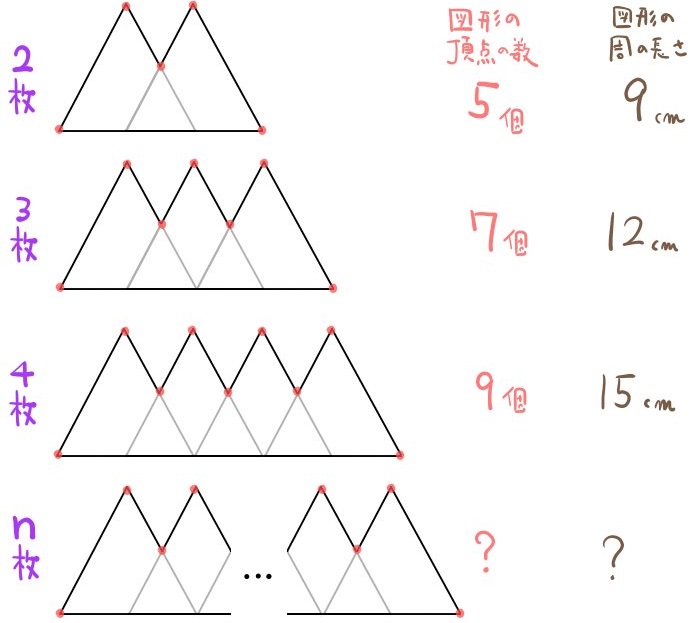 図形の
頂点の数
図形の
周の長さ
2
枚
5個
9cm
3
枚
7個
12cm
4
枚
9個
15cm
n
枚
...
?
?